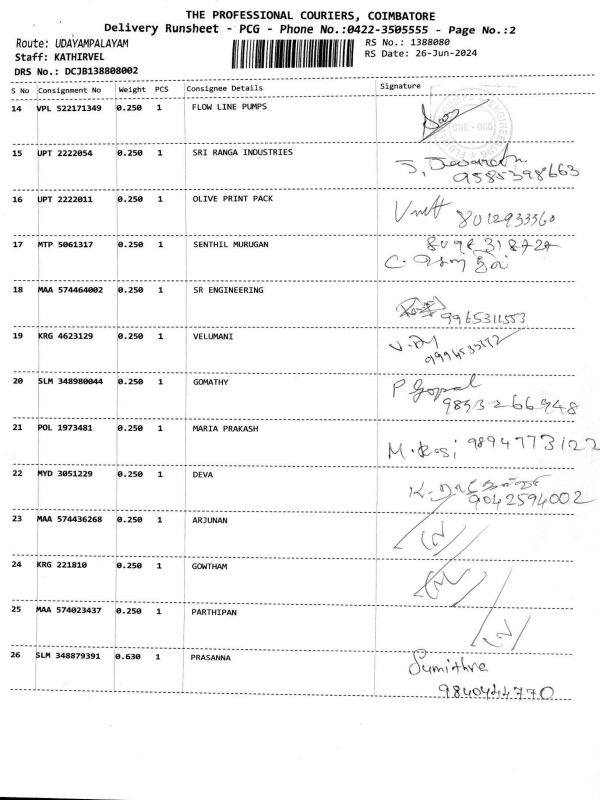 THE PROFESSIONAL COURIERS, COIMBATORE
Delivery Runsheet - PCG - Phone No.:0422-3505555 - Page No.:2
Route: UDAYAMPALAYAM RS No.: 1388080
Staff: KATHIRVEL RS Date: 26-Jun-2024
DRS No.: DCJB138808002
S No Consignment No Weight PCS Consignee Details Signature
14 VPL 522171349 0.250 1 FLOW LINE PUMPS
15 UPT 2222054 0.250 1 SRI RANGA INDUSTRIES
9585398663
16 UPT 2222011 0.250 1 OLIVE PRINT PACK
8012933360
17 MTP 5061317 0.250 1 SENTHIL MURUGAN
C.
18 MAA 574464002 0.250 1 SR ENGINEERING
9965311553
19 KRG 4623129 0.250 1 VELUMANI
20 SLM 348980044 0.250 1 GOMATHY
P Gopal
21 POL 1973481 0.250 1 MARIA PRAKASH
9894773122
22 MYD 3051229 0.250 1 DEVA
9042594002
23 MAA 574436268 0.250 1 ARJUNAN
24 KRG 221810 0.250 1 GOWTHAM
25 MAA 574023437 0.250 1 PARTHIPAN
26 SLM 348879391 0.630 1 PRASANNA
Sumithra
9840444770